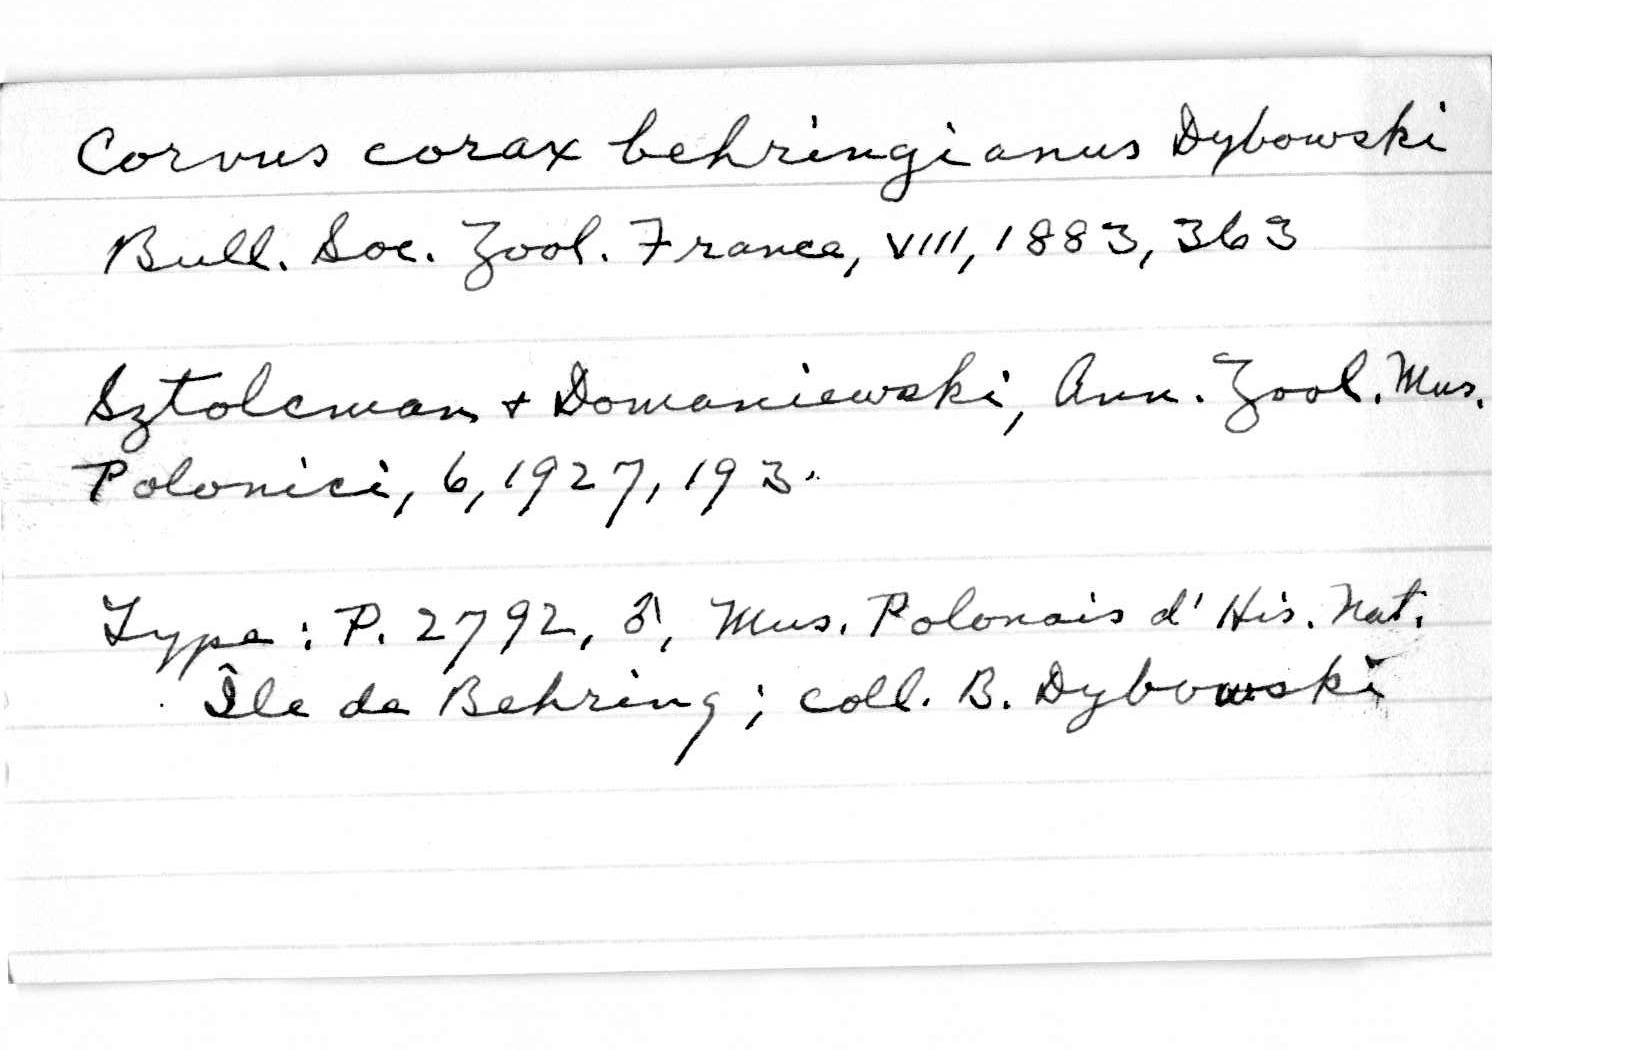 Corvus corax behringianus Dybowski
Bull. Soc. Zool. France, VIII, 1883, 363
Sztolcman + Domaniewski, Ann. Zool. Mus.
Polonici, 6, 1927, 193.
Type: P. 2792, ♂, Mus. Polonais d' His. Nat.
Île de Behring; coll. B. Dybowski